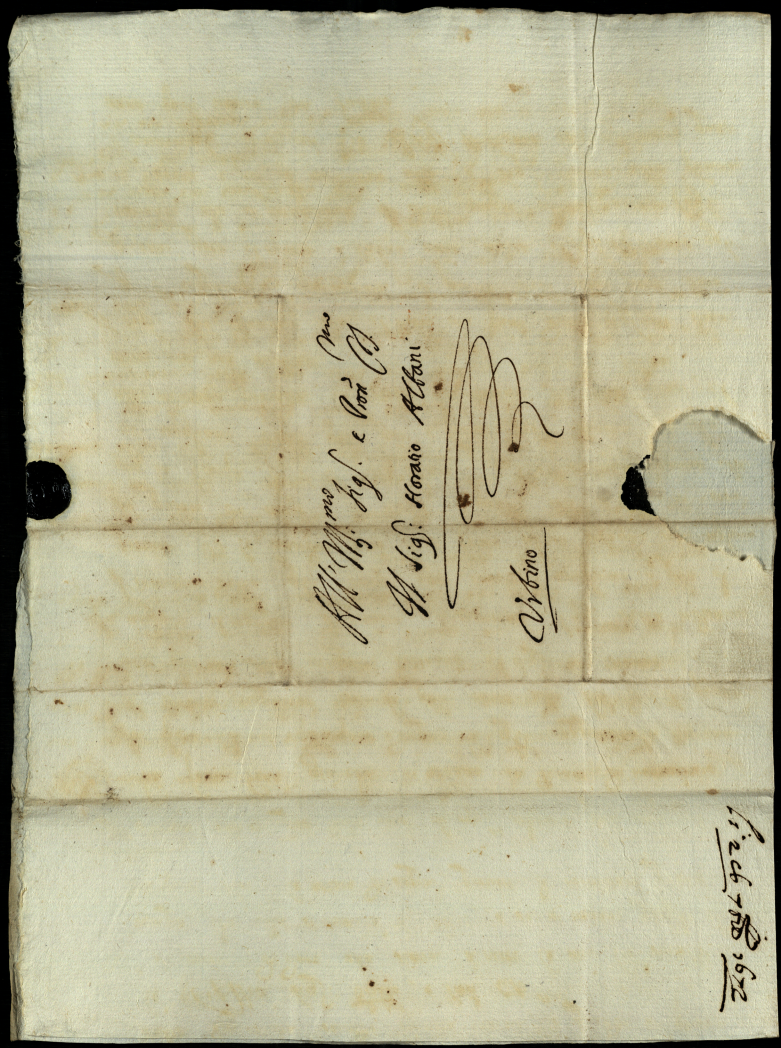 All' Ill.mo Sig.r e Pron Col.mo
Il Sig.r Horatio Albani
Urbino
1672